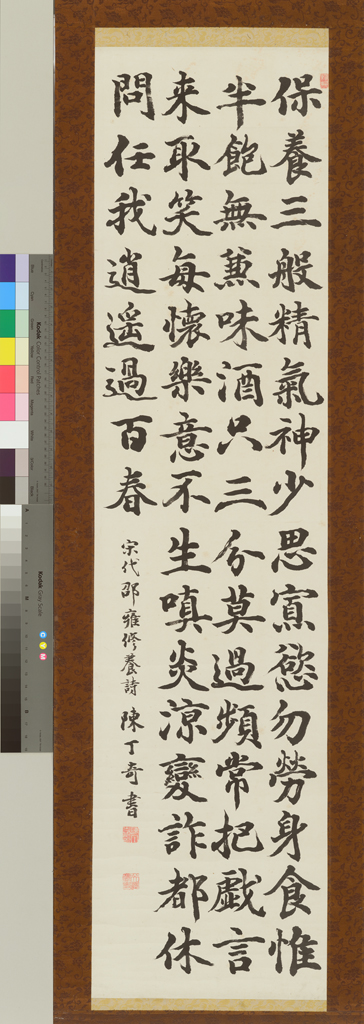 保養三般精氣神少思寡慾勿勞身食惟
半飽無兼味酒只三分莫過頻常把戲言
来取笑每懷樂意不生嗔炎涼變詐都休
問任我逍遥過百春
宋代邵雍修養詩 陳丁奇書
Kodak Color Control Patches
Kodak Gray Scale
C Y M